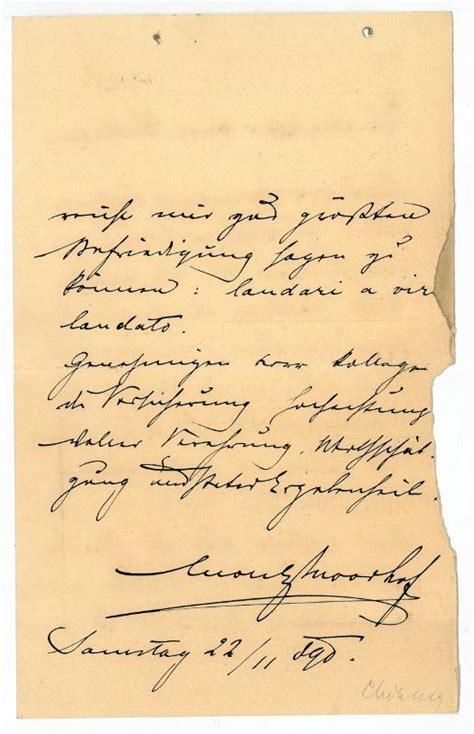 mir zur größten
Befriedigung sagen zu
können: laudari a vir
laudato.
Genehmigen Herr Kollege
die Versicherung hochachtungs
voller Verehrung, Wertschät-
zung und steter Ergebenheit.
Samstag 22/11 890.